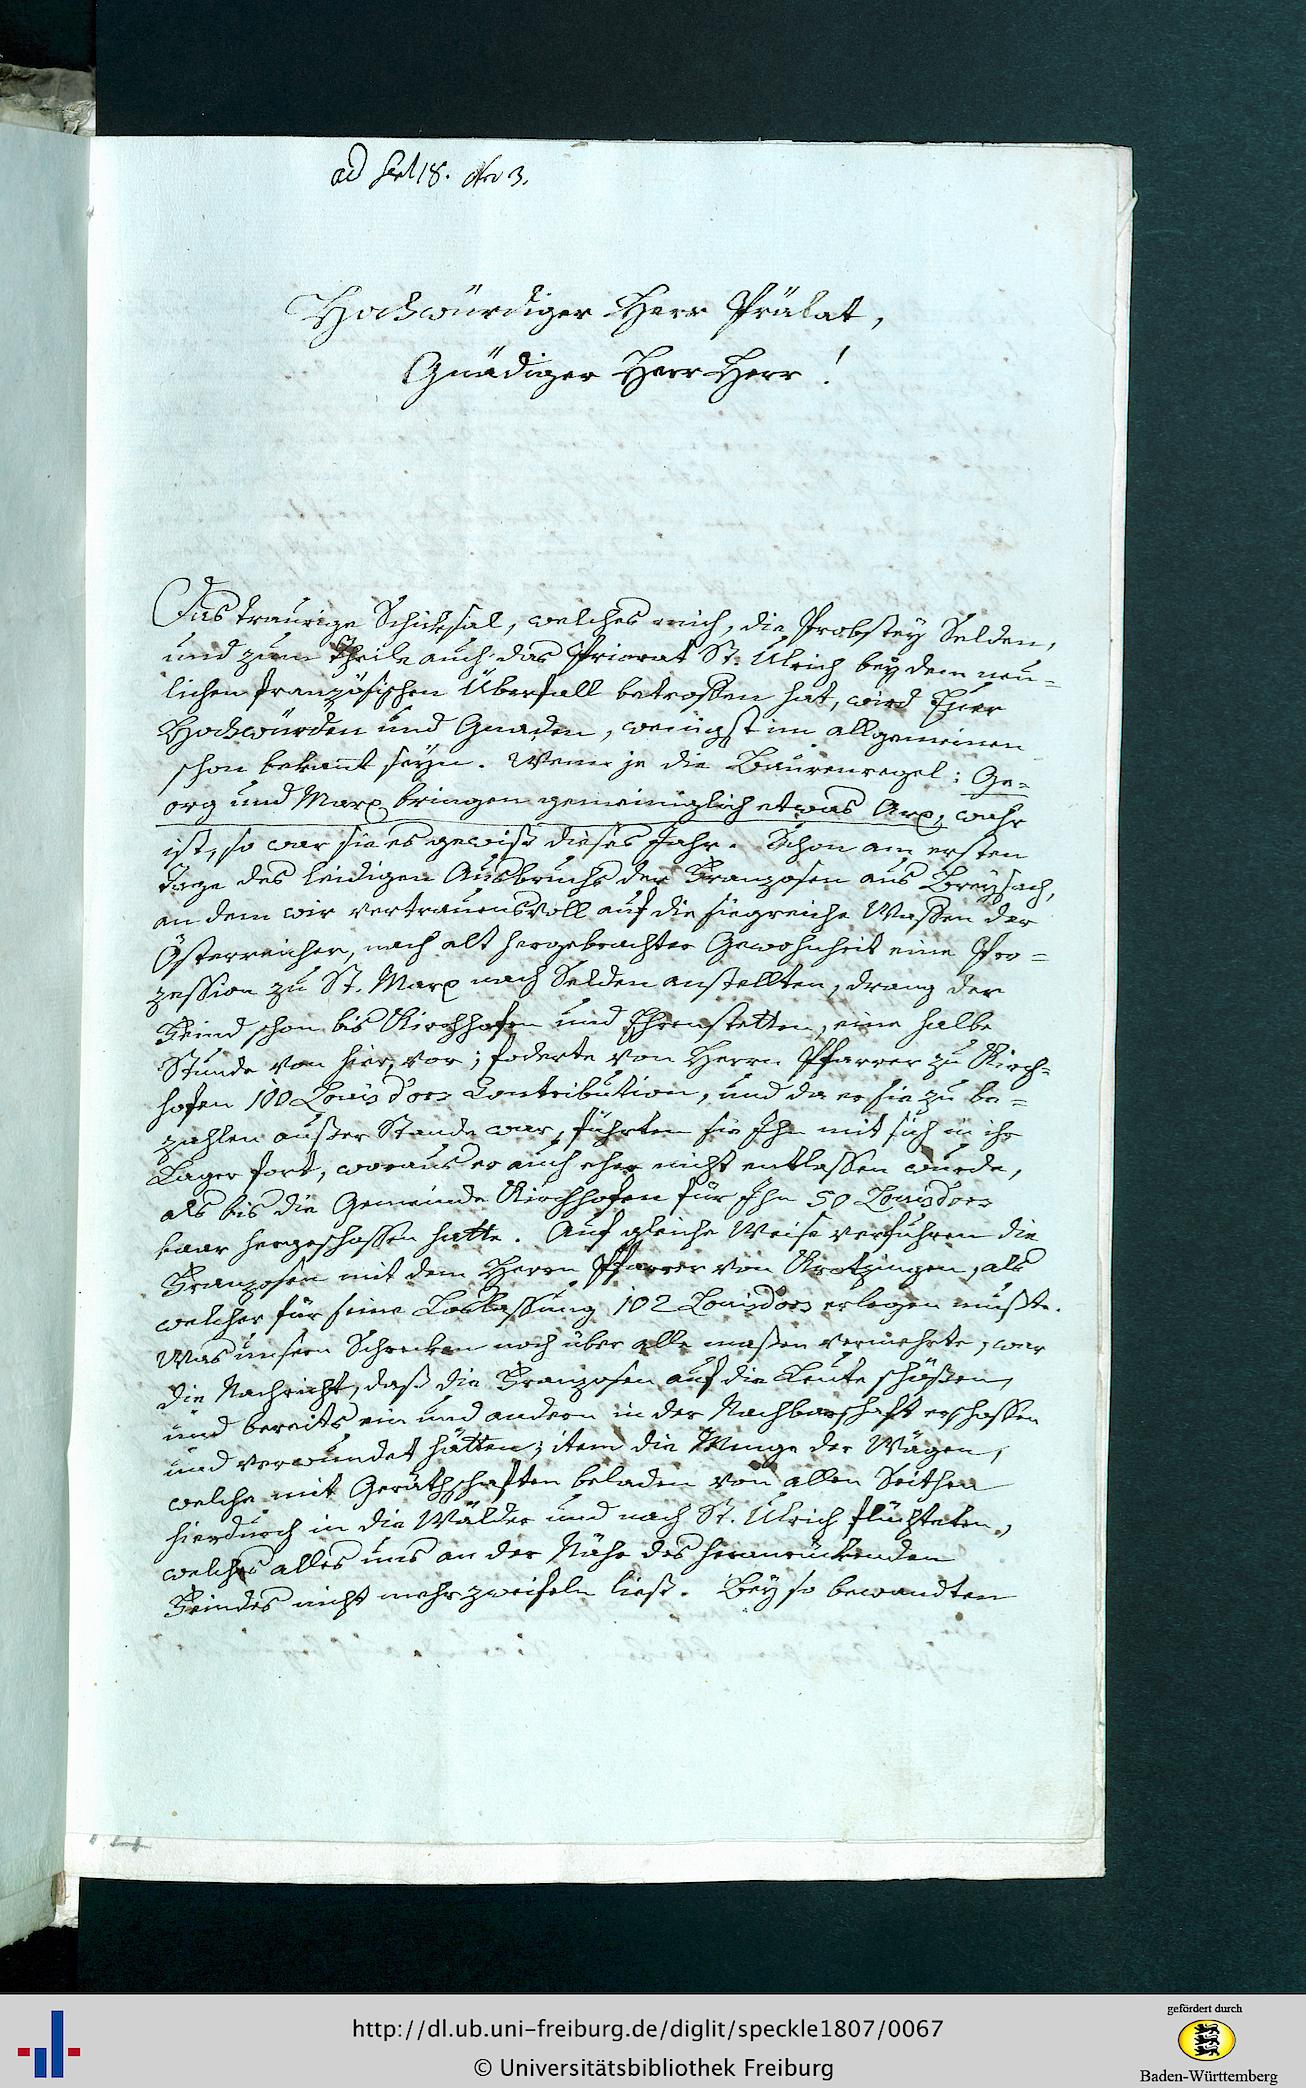 ad Sect 18. Nro 3.
Hochwürdiger Herr Prälat,
Gnädiger Herr Herr!
Das traurige Schiksal, welches mich, die Probstey Selden,
und zum Theile auch das Priorat St. Ulrich bey dem neu=
lichen französischen Überfall betroffen hat, wird Euer
Hochwürden und Gnaden, wenigst im allgemeinen
schon bekannt seyn. Wenn je die Baurenregel: Ge=
org und Marx bringen gemeiniglich etwas Arx, wahr
ist, so war sie es gewiß dieses Jahr. Schon am ersten
Tage des leidigen Ausbruchs der Franzosen aus Breysach,
an dem wir vertrauensvoll auf die siegreiche Waffen der
Österreicher, nach alt hergebrachter Gewohnheit eine Pro=
zession zu St. Marx nach Selden anstellten, drang der
Feind schon bis Kirchhofen und Ehrenstetten, eine halbe
Stunde von hier, vor; foderte von Herrn Pfarrer zu Kirch=
hofen 100 Louis d'ors Contribution, und da er sie zu be=
zahlen außer Stande war, führten sie Ihn mit sich in ihr
Lager fort, woraus er auch eher nicht entlassen wurde,
als bis die Gemeinde Kirchhofen für Ihn 50 Louisdors
baar hergeschossen hatte. Auf gleiche Weise verfuhren die
Franzosen mit dem Herrn Pfarrer von Krotzingen, als
welcher für seine Loslassung 102 Louisdors erlegen mußte.
Was unsern Schrecken noch über alle maßen vermehrte, war
die Nachricht, daß die Franzosen auf die Leute schößen,
und bereits ein und andern in der Nachbarschaft erschossen
und verwundet hätten; item die Menge der Wägen,
welche mit Geräthschaften beladen von allen Seithen
hierdurch in die Wälder und nach St. Ulrich flüchteten,
welches alles uns an der Nähe des heranrückenden
Feindes nicht mehr zweifeln ließ. Bey so bewandten
http://dl.ub.uni-freiburg.de/diglit/speckle1807/0067
© Universitätsbibliothek Freiburg
gefördert durch
Baden-Württemberg